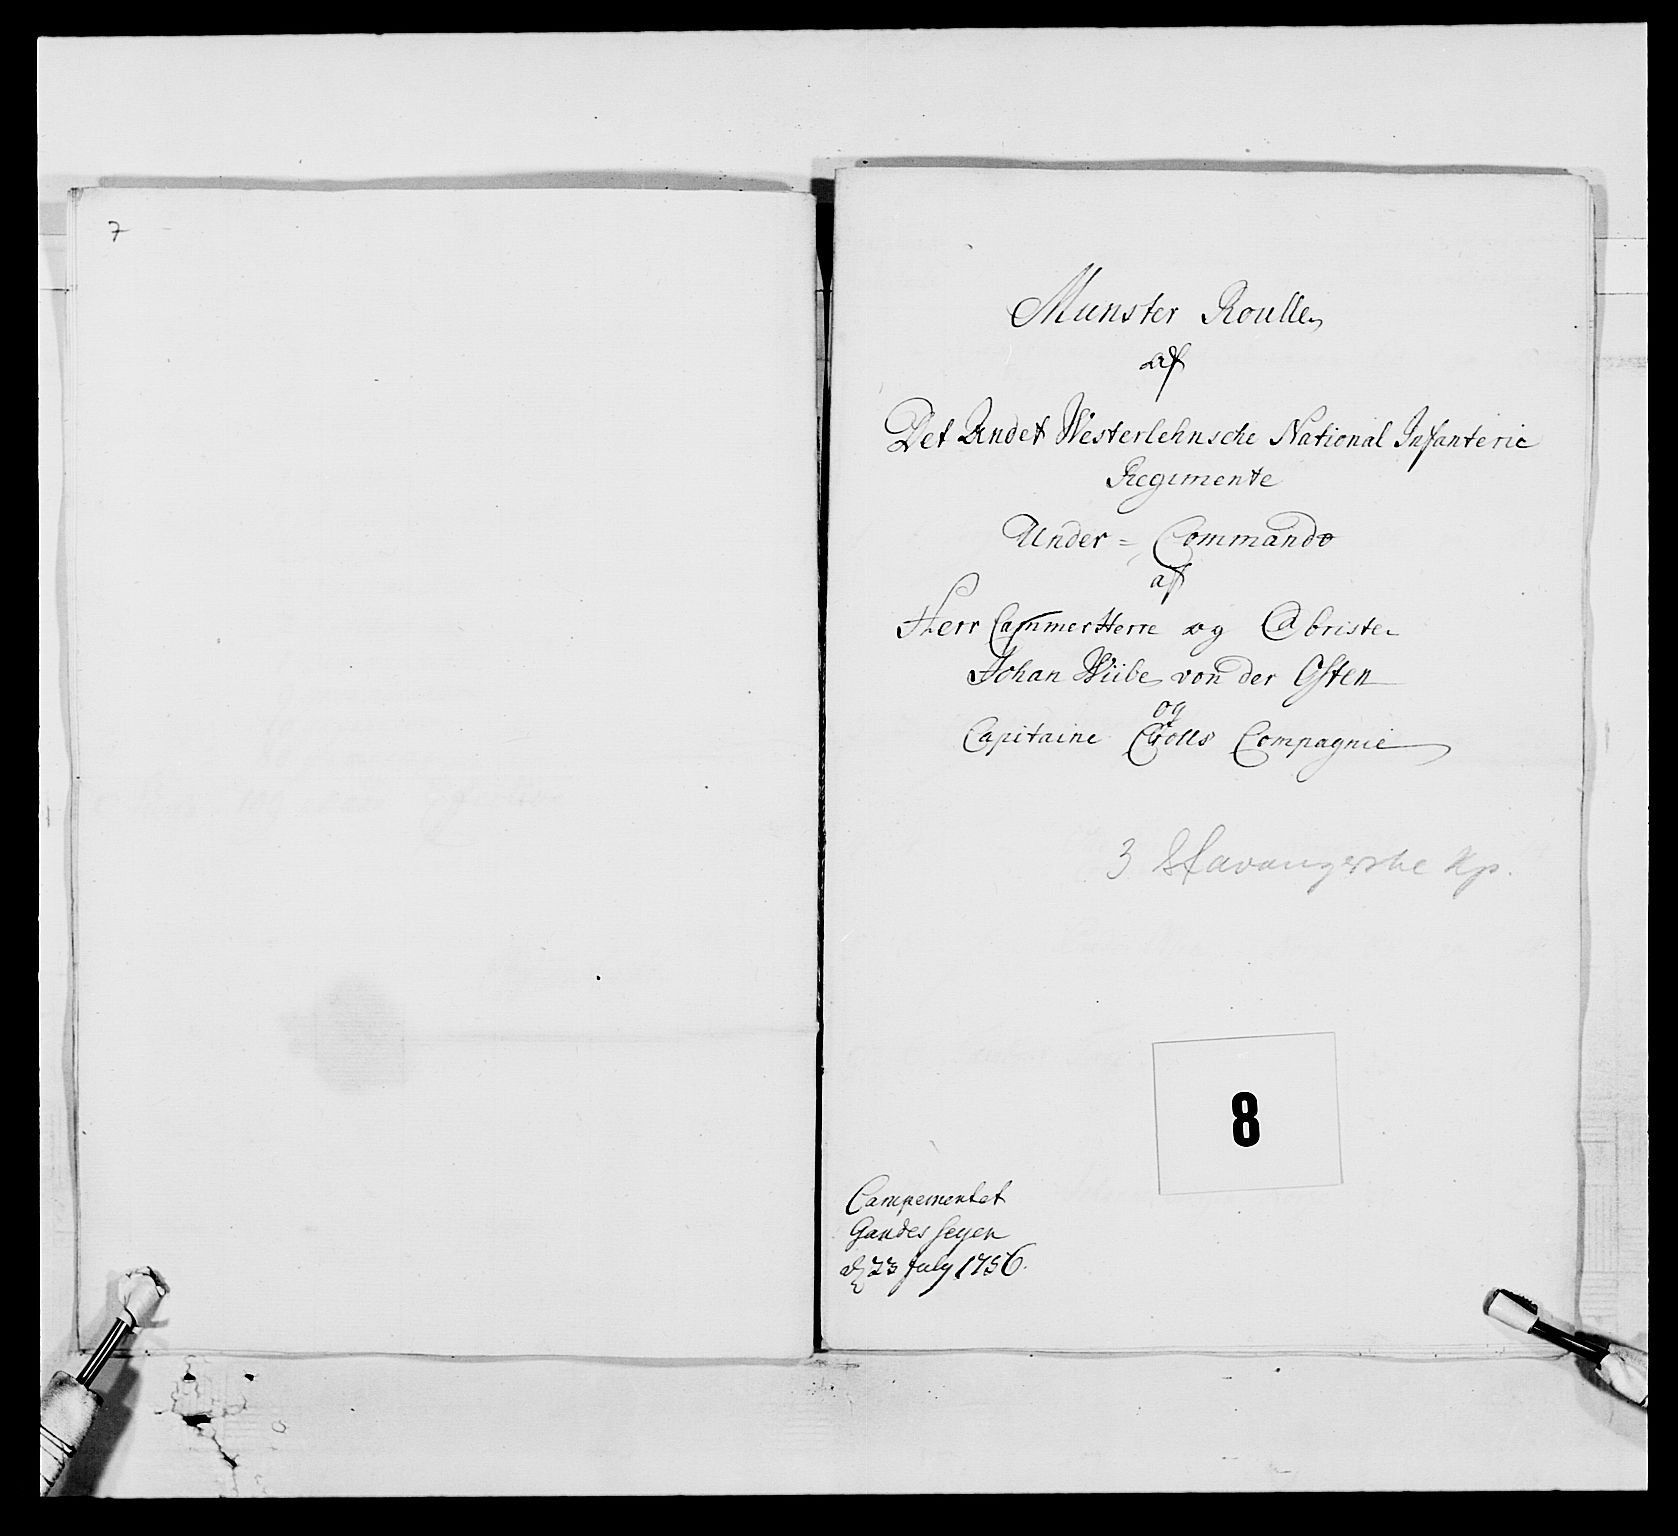 7
Munster Roulle
af
Det Andet Westerlehnsche National Infanterie
Regimente
Under = Commando
af
Herr CammerHerre og Obriste
Johan Wiibe von der Osten
og
Capitaine Crolls Compagnie
3 Stavangerske Kp.
8
Campementet
d 23 July 1756.